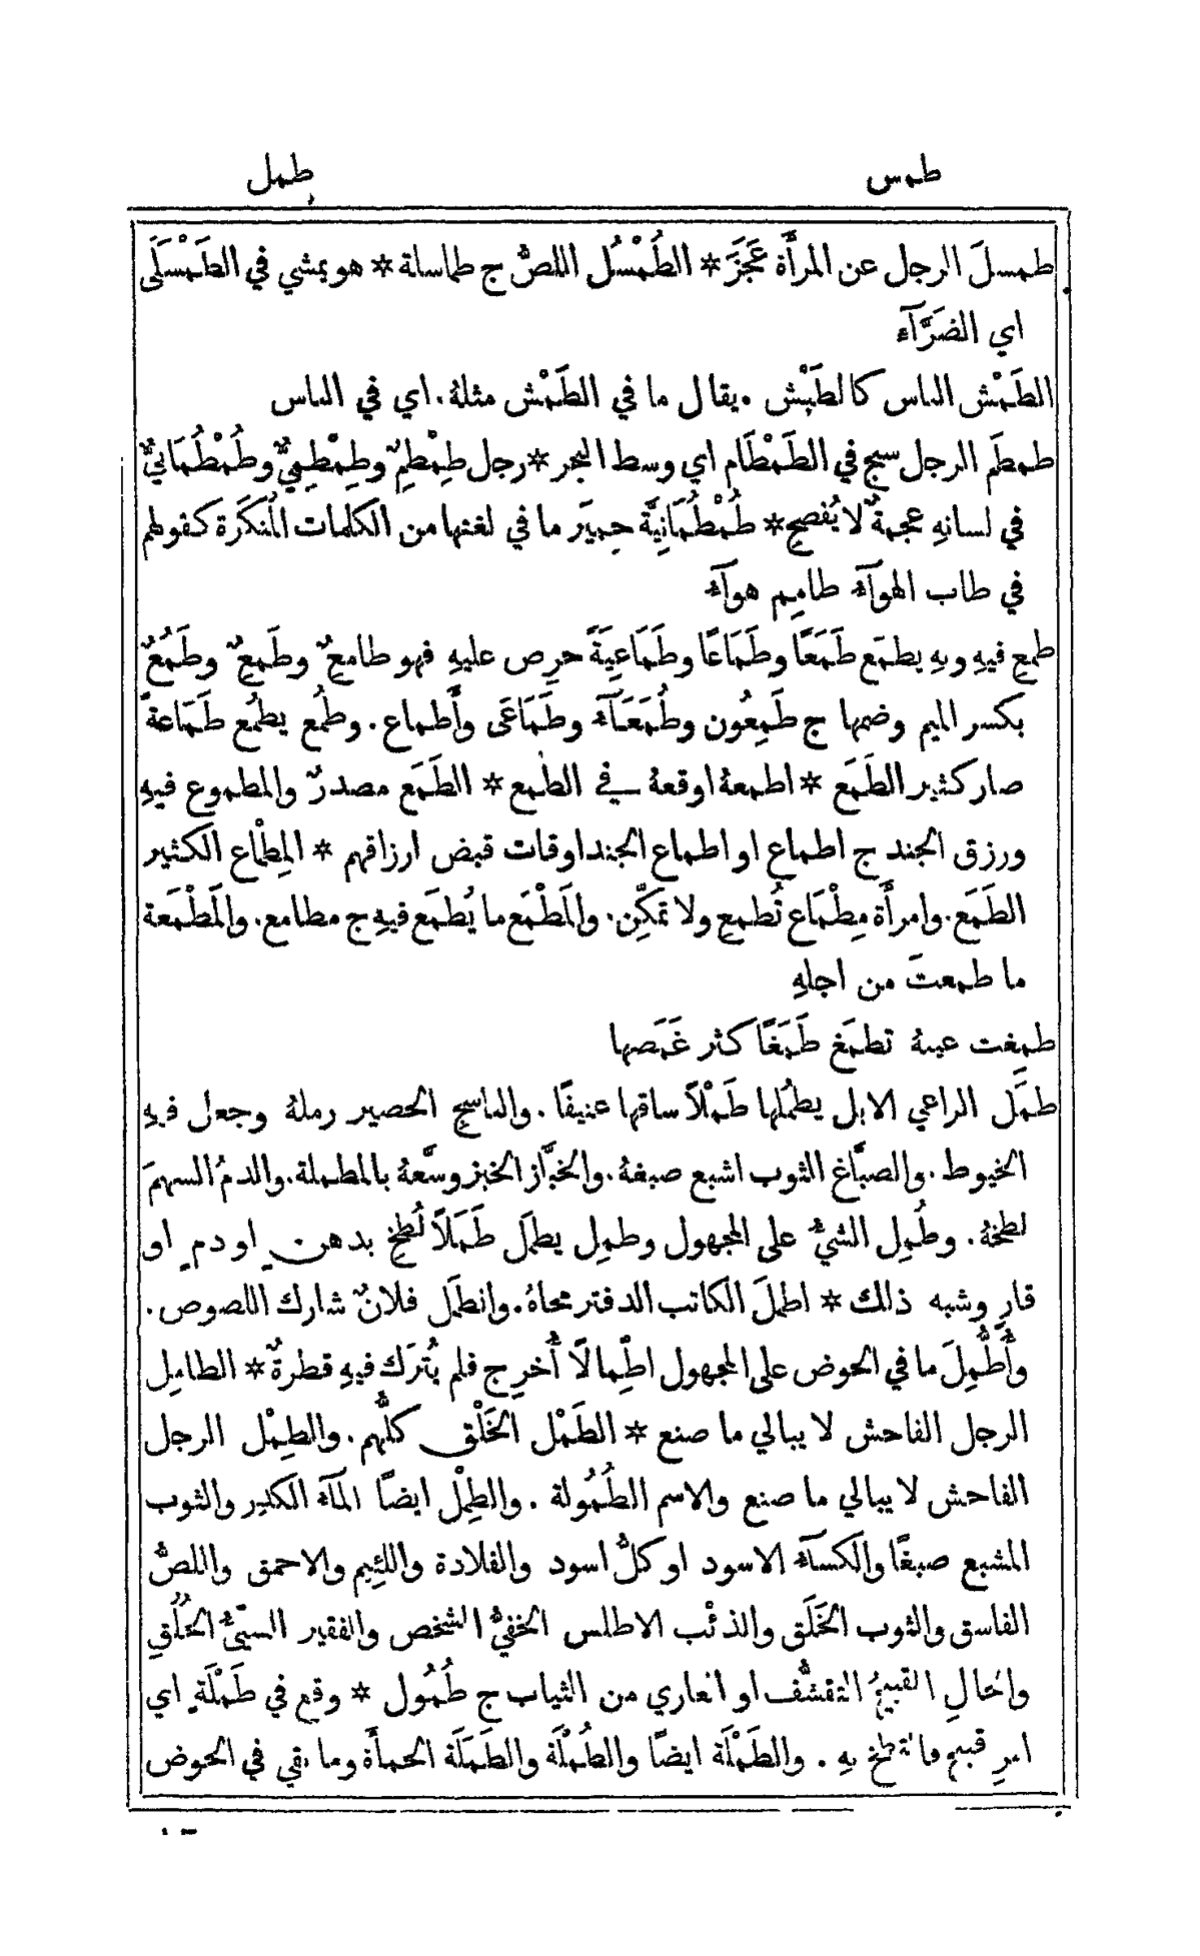 طمس طمل
طمسلَ الرجل عن المرأَة عَجَزَ * الطُمْسُل اللصُّ ج طماسلة * هو يمشي في الطَمْسَلَى
اي الضَرَّآء
الطَمْش الناس كالطَبْش . يقال ما في الطَمْش مثلهُ . اي في الناس
طمطَم الرجل سبح في الطَمْطَام اي وسط البحر * رجل طِمْطِمٌ وطِمْطِميٌّ وطُمْطُمَانيٌّ
في لسانهِ عجمةٌ لا يُفصِح * طُمْطُمَانِيَّة حِميَر ما في لغتها من الكلمات المُنكَرة كقولهم
في طاب الهوآءُ طامِم هوآءُ
طمع فيهِ وبهِ يطمَع طَمَعًا وطَمَاعًا وطَمَاعِيَةً حرِص عليهِ فهو طامعٌ وطَمِعٌ وطَمُعٌ
بكسر الميم وضمها ج طَمِعُون وطُمَعَآءُ وطَمَاعَى وأَطماع . وطمُع يطمُع طَمَاعةً
صار كثير الطَمَع * اطمعهُ اوقعهُ في الطمع * الطَمَع مصدرٌ والمطموع فيهِ
ورزق الجند ج اطماع او اطماع الجند اوقات قبض ارزاقهم * المِطْماع الكثير
الطَمَع . وامرأَة مِطْمَاع تُطمِع ولا تمكِّن . والمَطْمَع ما يُطمَع فيهِ ج مطامع . والمَطْمَعة
ما طمعتَ من اجلهِ
طمِغت عينهُ تطمَغ طَمَغًا كثر غَمَصها
طمَل الراعي الابل يطمُلها طَمْلًا ساقها عنيفًا . والناسج الحصير رملهُ وجعل فيهِ
الخيوط . والصبَّاغ الثوب اشبع صبغهُ . والخبَّاز الخبز وسَّعهُ بالمطملة . والدمُ السهمَ
لطخهُ . وطُمِل الشيُّ على المجهول وطمِل يطمَل طَمَلًا لُطِخ بدهنٍ او دمٍ او
قارٍ وشبه ذلك * اطملَ الكاتب الدفتر محاهُ . وانطمَل فلانٌ شارك اللصوص .
وأُطُّمِلَ ما في الحوض على المجهول اطِّمالًا أُخرِج فلم يُترَك فيهِ قطرةٌ * الطامِل
الرجل الفاحش لا يبالي ما صنع * الطَمْل الخَلْق كلُّهم . والطِمْل الرجل
الفاحش لا يبالي ما صنع والاسم الطُمُولة . والطِمْل ايضًا المآء الكدِر والثوب
المشبع صبغًا والكسآء الاسود او كلُّ اسود والقلادة واللئِيم والاحمق واللصُّ
الفاسق والثوب الخَلَق والذئْب الاطلس الخفيُّ الشخص والفقير السيّئُ الخُلُقِ
والحالِ القبيحُ التقشُّف او العاري من الثياب ج طُمُول * وقع في طَمْلَةٍ اي
امرٍ قبيح فالتطخ بهِ . والطَمْلَة ايضًا والطُمْلَة والطَمَلَة الحمأَة وما بقي في الحوض